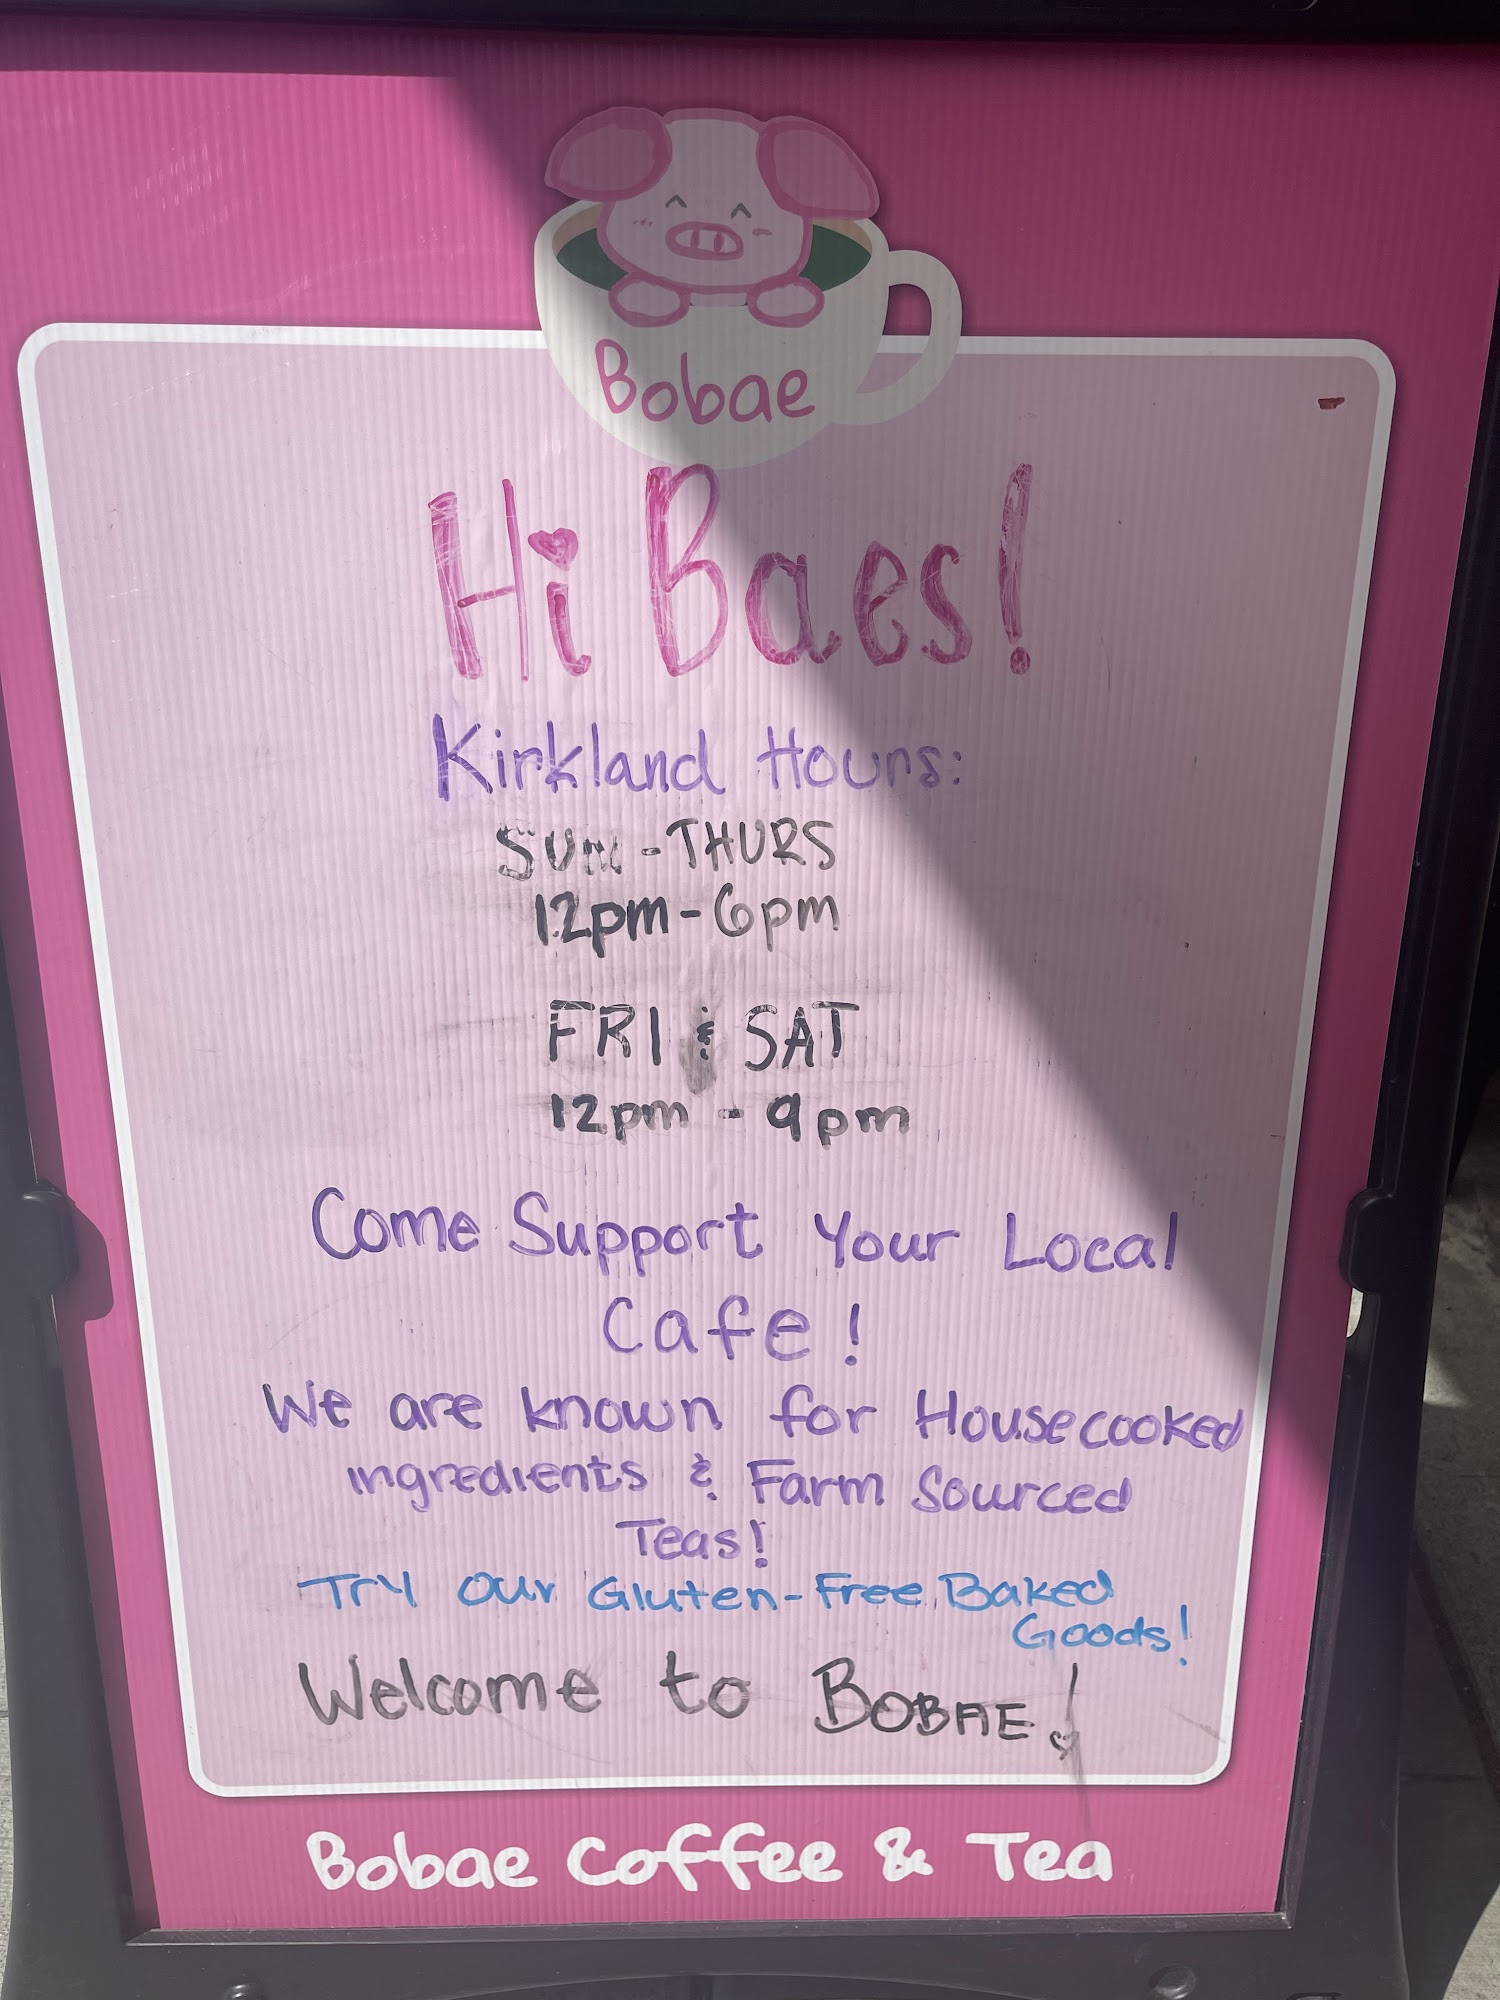 Bobae
Hi Baes!
Kirkland Hours:
SUN - THURS
12pm - 6pm
FRI & SAT
12pm - 9pm
Come Support Your Local
Cafe!
We are known for Housecooked
ingredients & Farm Sourced
Teas!
Try our Gluten-Free Baked
Goods!
Welcome to BOBAE!
Bobae Coffee & Tea